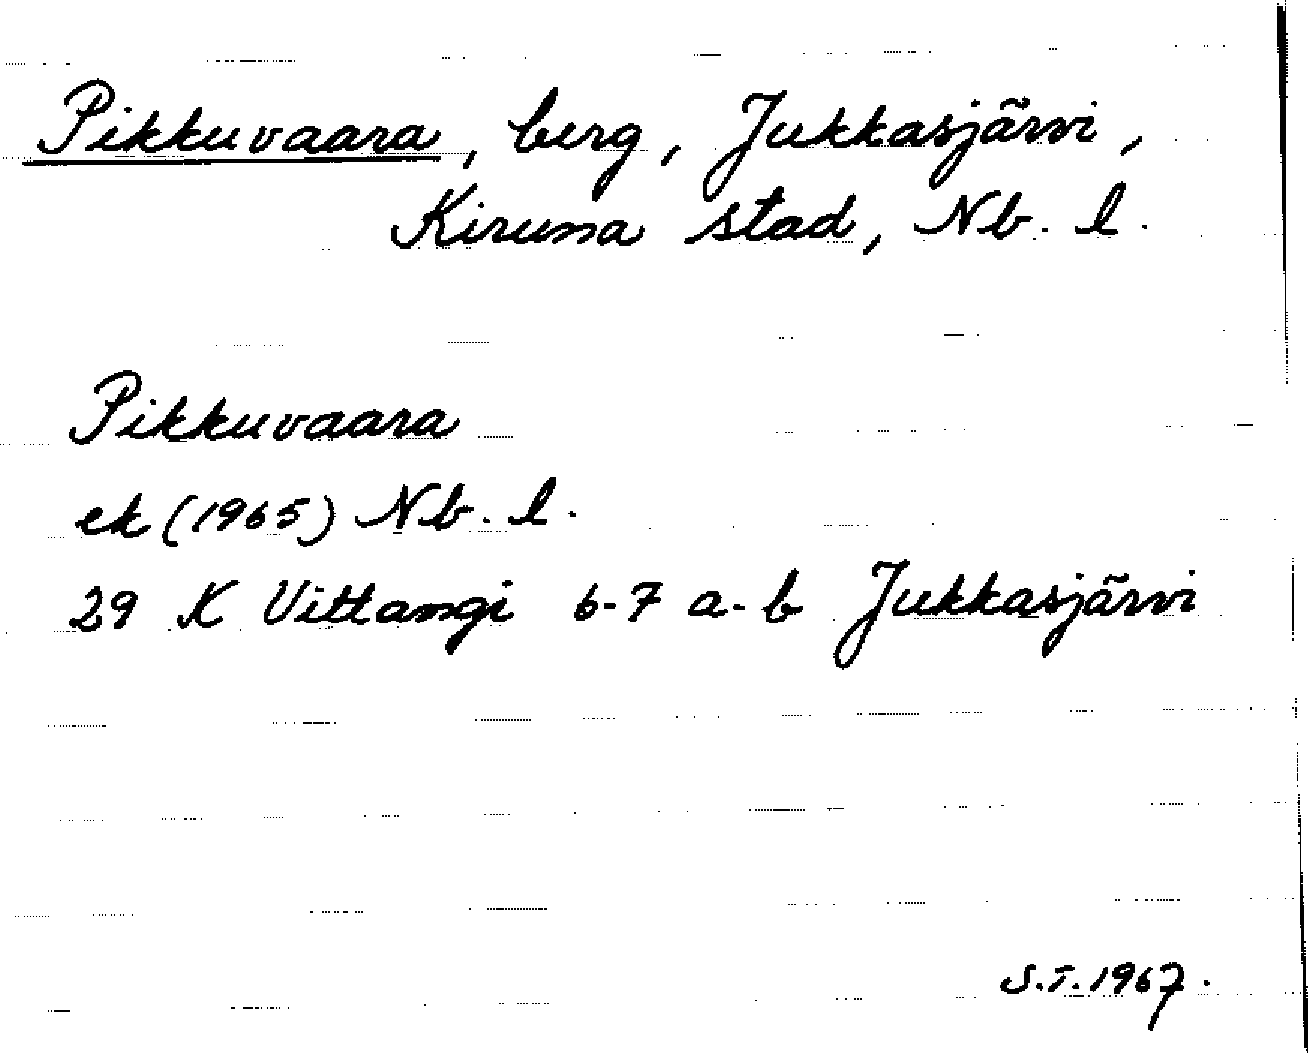 Pikkuvaara, berg, Jukkasjärvi,
Kiruna stad, Nb. l.
Pikkuvaara
ek (1965) Nb. l.
29 K Vittangi 6-7 a-b Jukkasjärvi
S.T. 1967.